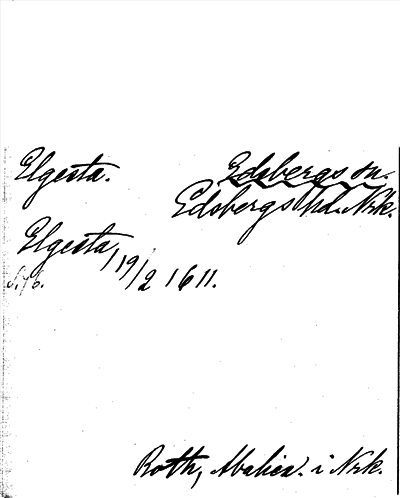 Elgesta. Edsbergs sn.
Edsbergs hd. Nrk.
Elgesta, 19/2 1611.
s. 76.
Roth, Abalien. i Nrk.